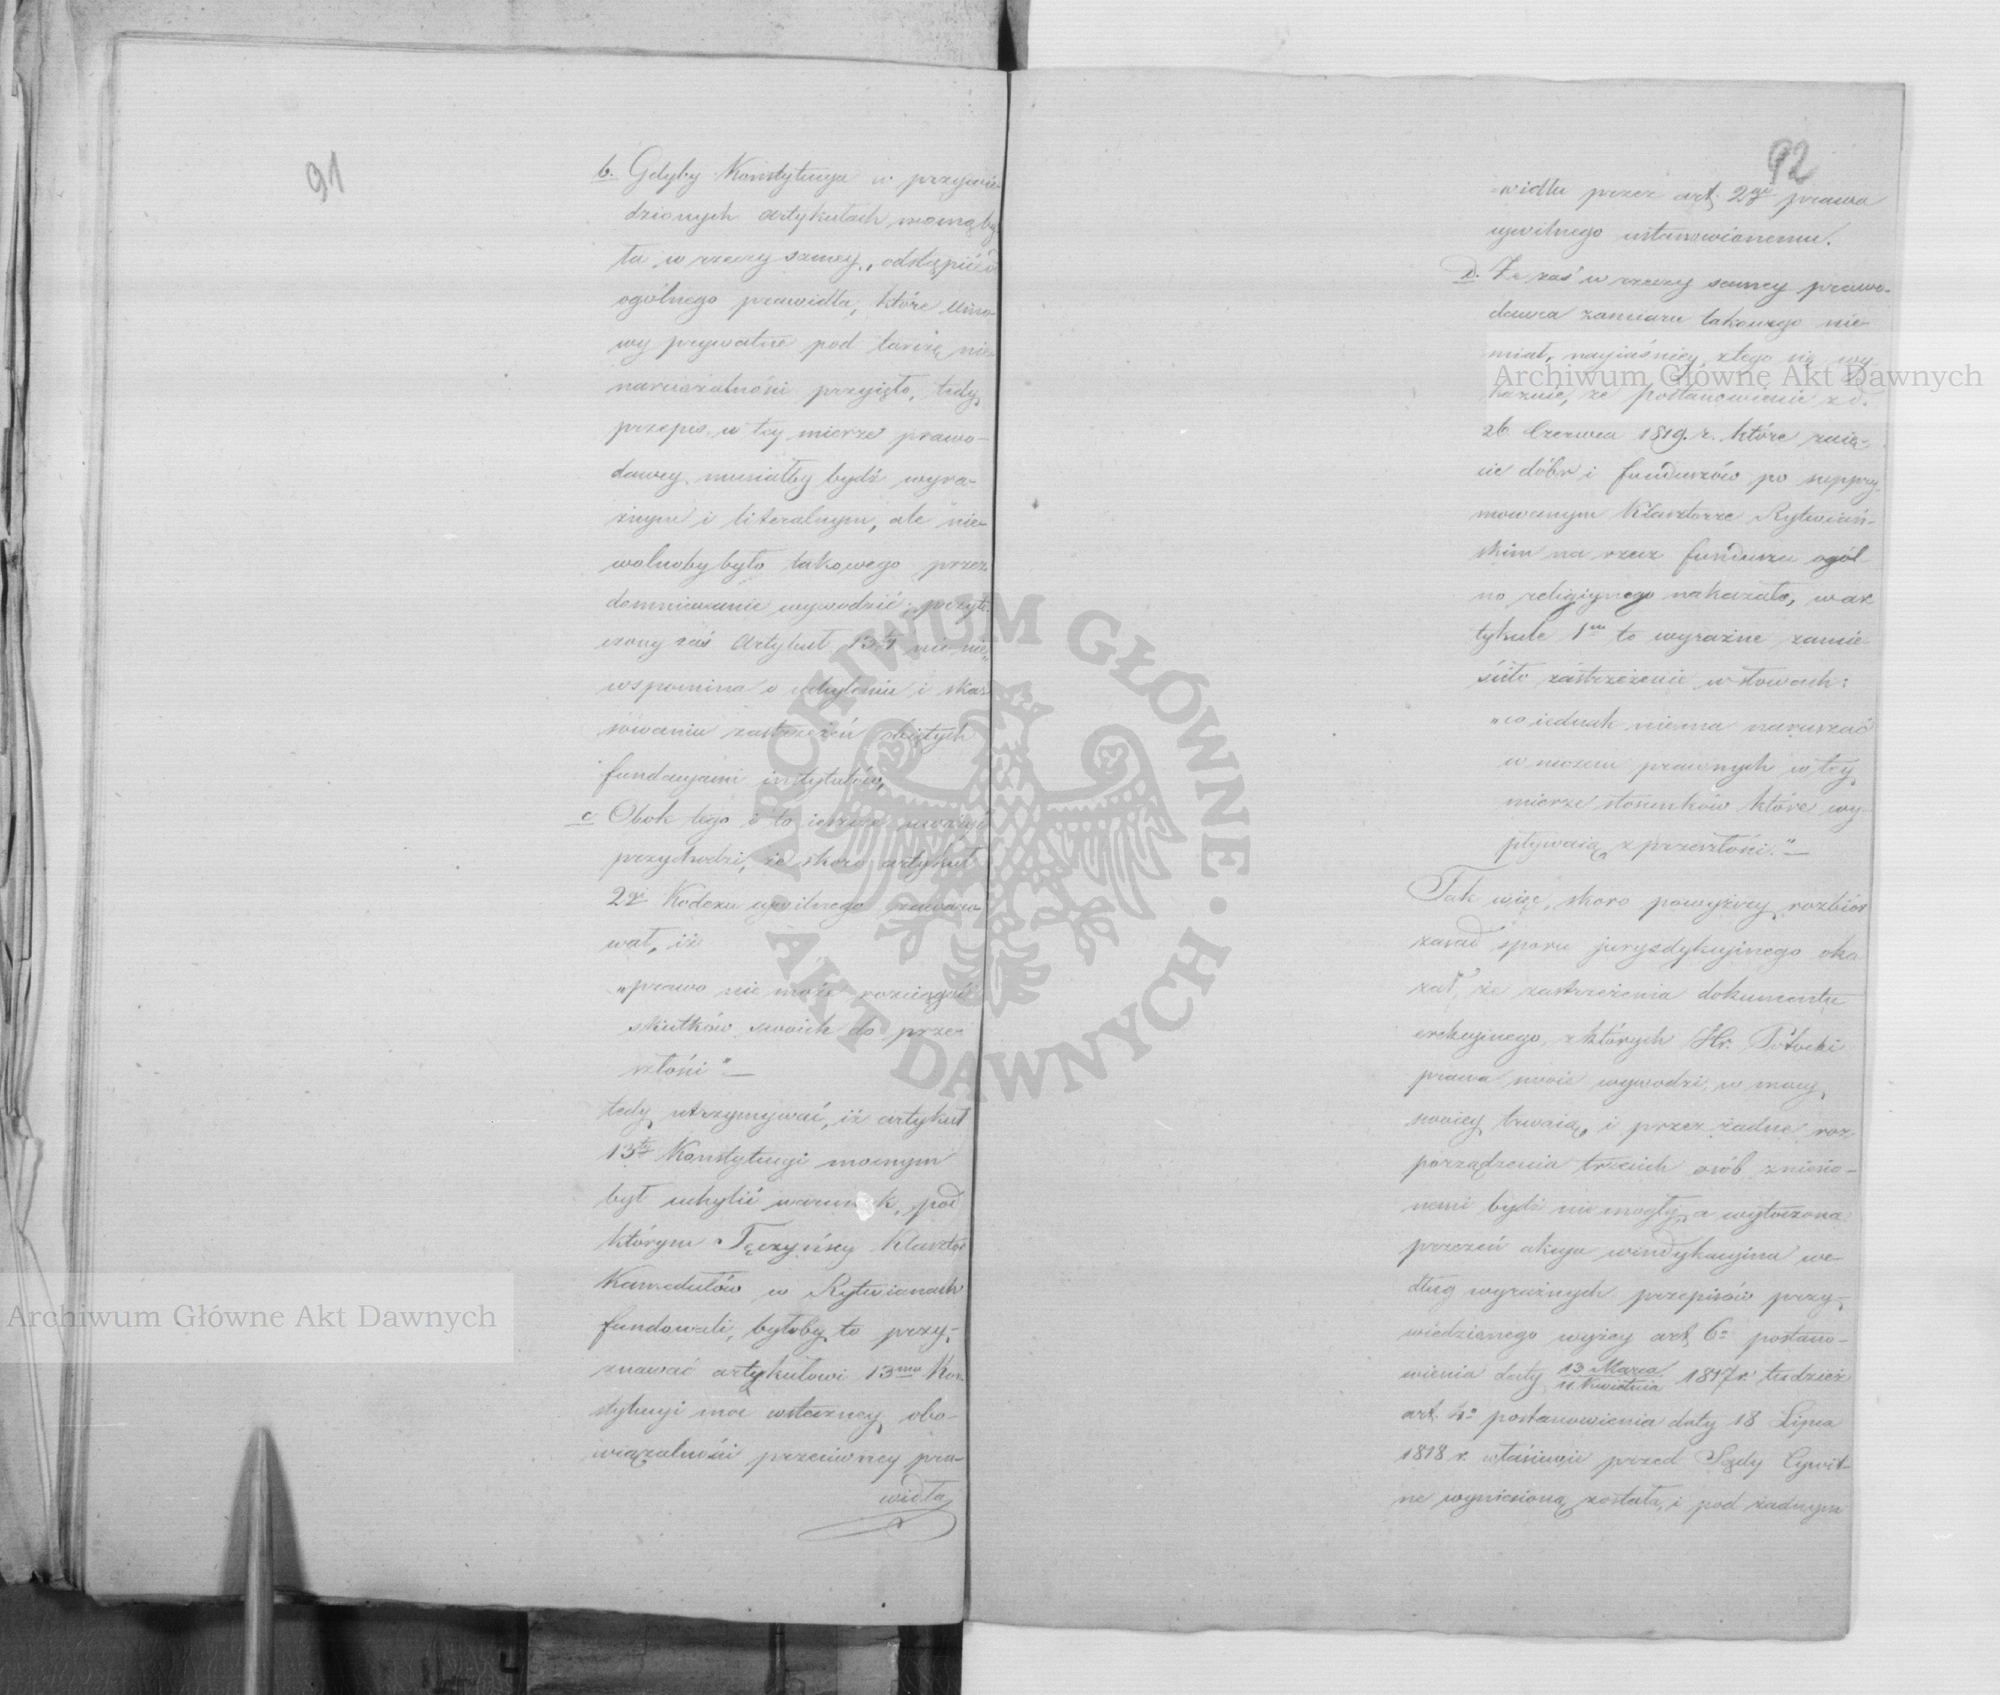 91
b. Gdyby Konstytucya w przywie-
dzionych artykułach mocną by-
ła w rzeczy samey, odstąpić od
ogólnego prawidła, które umo-
wy prywatne pod tarczę nie-
naruszalności przyięło, tedy
przepis w tey mierze prawo-
dawcy musiałby bydź wyra-
źnym i literalnym, ale nie-
wolnoby było takowego przez
domniemanie wywodzić; przyto-
czony zaś Artykuł 13ty nic nie
wspomina o uchyleniu i skas-
sowaniu zastrzeżeń obiętych
fundacyami instytutów,
c Obok tego i to ieszcze
przychodzi, że skoro artykuł
2gi Kodexu cywilnego zawaro-
wał, iż
„prawo nie może rozciągać
skutków swoich do prze-
szłości" —
tedy utrzymywać, iż artykuł
13ty Konstytucyi mocnym
był uchylić warunek, pod
którym Tęczyńscy Klasztor
Kamedułów w Rytwianach
fundowali, byłoby to przy-
znawać artykułowi 13mu Kon-
stytucyi moc wsteczney obo-
wiązalności przeciwney pra-
widła
92
-widłu przez art. 2gi prawa
cywilnego ustanowionemu.
d. Że zaś w rzeczy samey prawo-
dawca zamiaru takowego nie
miał, nayiaśniey ztego się wy-
kazuie, że postanowienie z d.
26 Czerwca 1819. r. które zaię-
cie dóbr i funduszów po suppry-
mowanym Klasztorze Rytwiań-
skim na rzecz funduszu ogól
no religiynego nakazało, w ar
tykule 1m to wyraźne zamie-
ściło zastrzeżenie w słowach:
„co iednak niema naruszać
w niczem prawnych w tey
mierze stosunków które wy-
pływaią z przeszłości." —
Tak więc, skoro powyższy rozbiór
zasad sporu juryzdykcyinego oka
zał, że zastrzeżenia dokumentu
erekcyinego, z których Hr. Potocki
prawa swoie wywodzi, w mocy
swoiey trwaią, i przez żadne roz
porządzenia trzecich osób zniesio-
nemi bydź nie mogły, a wytoczona
przezeń akcya windykacyina we-
dług wyraźnych przepisów przy-
wiedzionego wyżey art. 6o postano-
wienia daty 13 Marca / Kwietnia 1817 r. tudzież
art. 4o postanowienia daty 18 Lipca
1818 r. właściwie przed Sądy Cywil-
ne wyniesioną została, i pod żadnym
Archiwum Główne Akt Dawnych
Archiwum Główne Akt Dawnych
ARCHIWUM GŁÓWNE • AKT DAWNYCH •